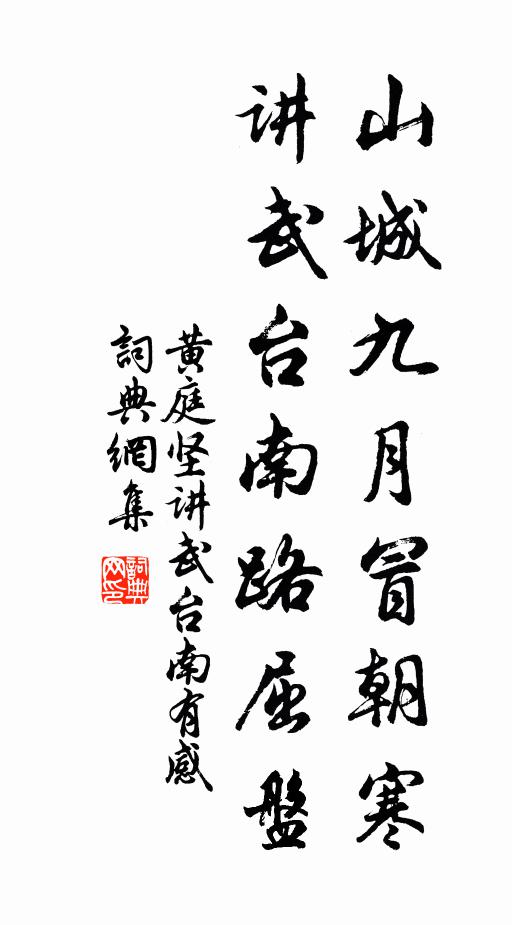 山城九月冒朝寒
讲武台南路屈盤
黄庭坚讲武台南有感
詞典網集
詞典
网印